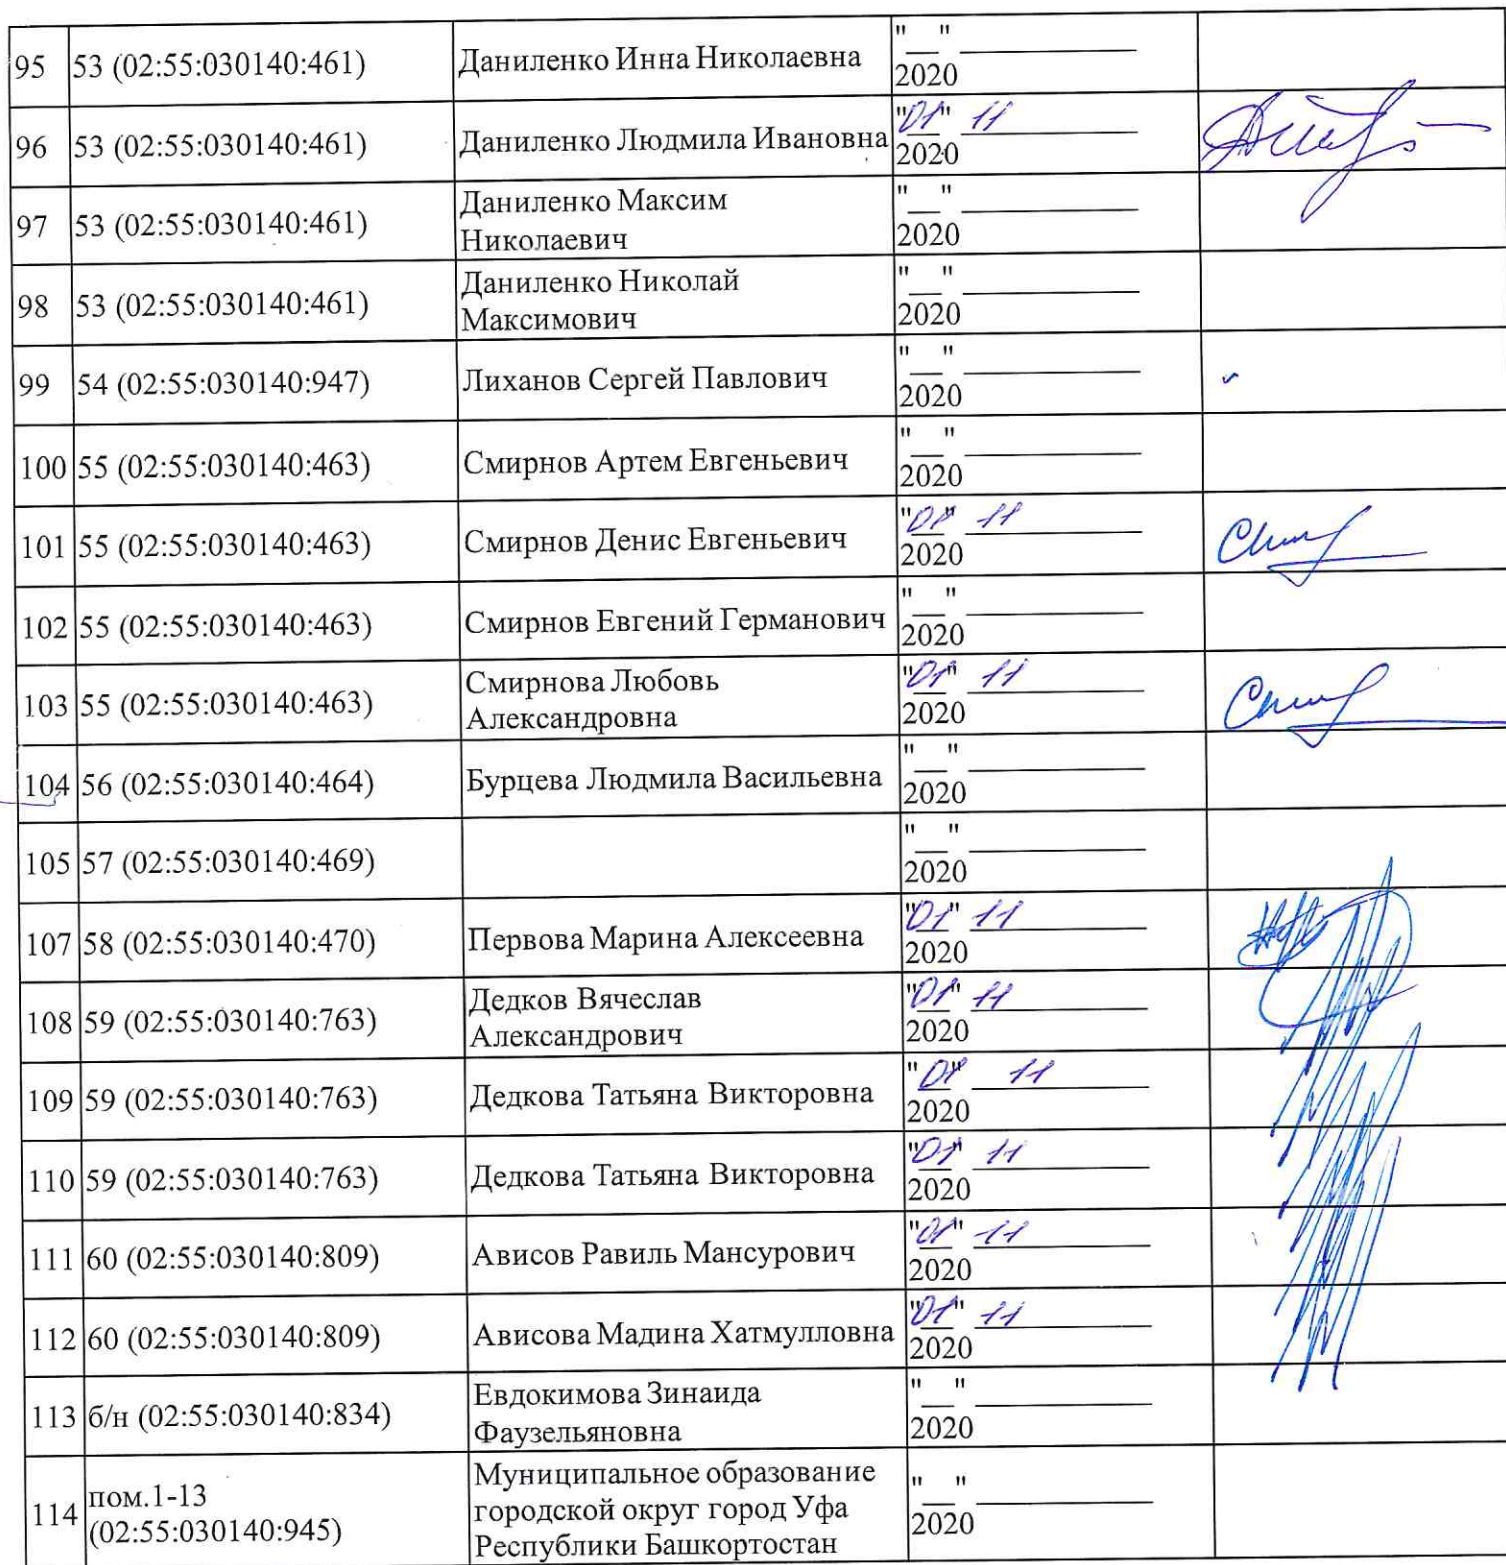 95 53 (02:55:030140:461) Даниленко Инна Николаевна "__" ____________ 2020
96 53 (02:55:030140:461) Даниленко Людмила Ивановна "01" 11 2020
97 53 (02:55:030140:461) Даниленко Максим
Николаевич "__" ____________ 2020
98 53 (02:55:030140:461) Даниленко Николай
Максимович "__" ____________ 2020
99 54 (02:55:030140:947) Лиханов Сергей Павлович "__" ____________ 2020
100 55 (02:55:030140:463) Смирнов Артем Евгеньевич "__" ____________ 2020
101 55 (02:55:030140:463) Смирнов Денис Евгеньевич "01" 11 2020
102 55 (02:55:030140:463) Смирнов Евгений Германович "__" ____________ 2020
103 55 (02:55:030140:463) Смирнова Любовь
Александровна "01" 11 2020
104 56 (02:55:030140:464) Бурцева Людмила Васильевна "__" ____________ 2020
105 57 (02:55:030140:469) "__" ____________ 2020
107 58 (02:55:030140:470) Первова Марина Алексеевна "01" 11 2020
108 59 (02:55:030140:763) Дедков Вячеслав
Александрович "01" 11 2020
109 59 (02:55:030140:763) Дедкова Татьяна Викторовна "01" 11 2020
110 59 (02:55:030140:763) Дедкова Татьяна Викторовна "01" 11 2020
111 60 (02:55:030140:809) Ависов Равиль Мансурович "01" 11 2020
112 60 (02:55:030140:809) Ависова Мадина Хатмулловна "01" 11 2020
113 б/н (02:55:030140:834) Евдокимова Зинаида
Фаузельяновна "__" ____________ 2020
114 пом.1-13
(02:55:030140:945) Муниципальное образование
городской округ город Уфа
Республики Башкортостан "__" ____________ 2020